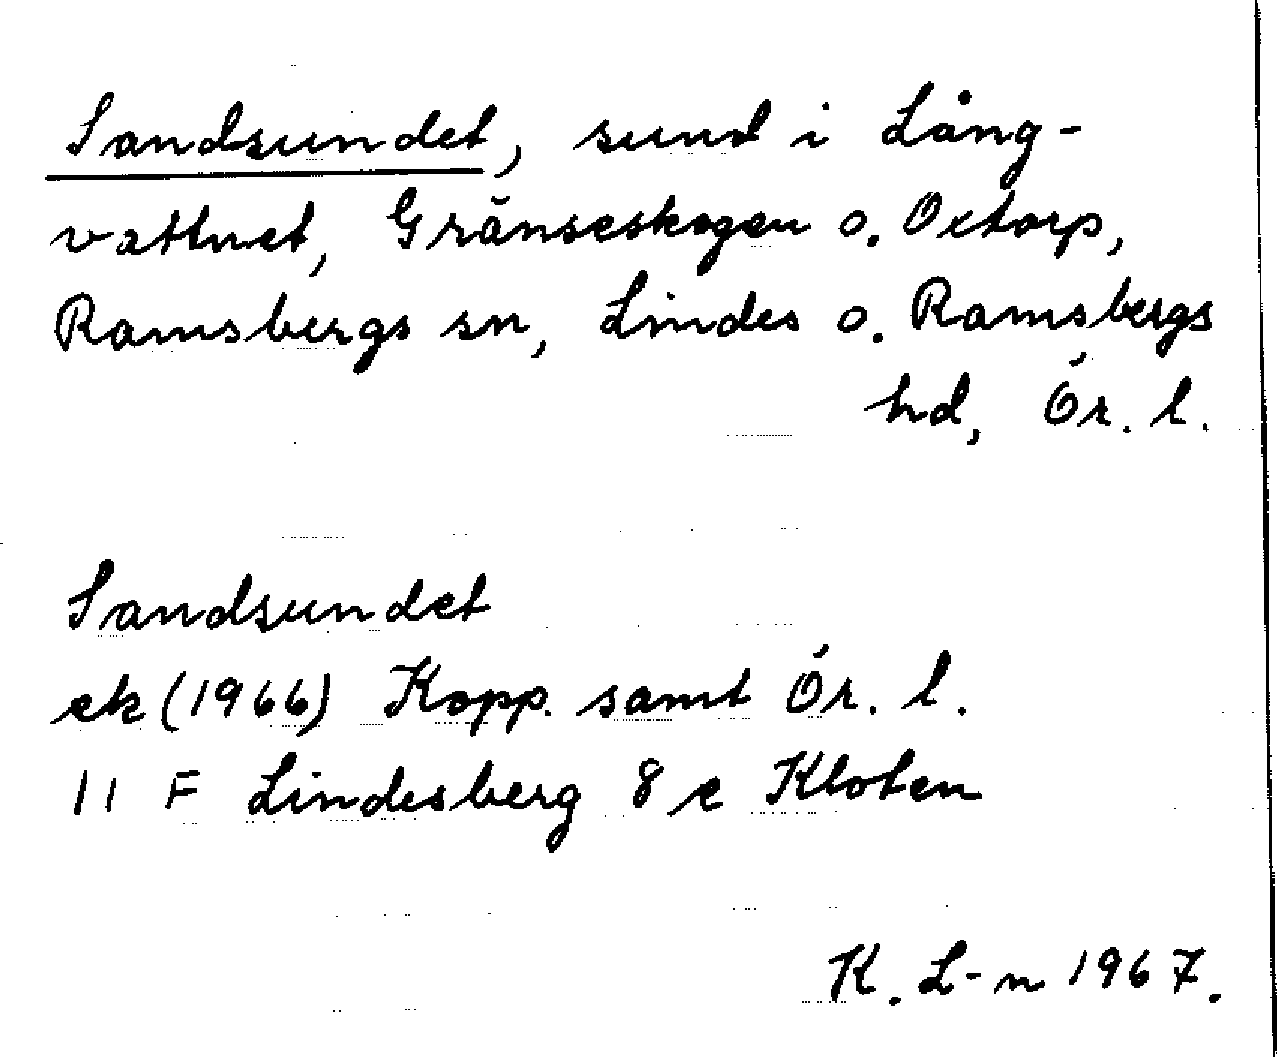 Sandsundet, sund i Lång-
vattnet, Gränseskogen o. Oxtorp,
Ramsbergs sn, Lindes o. Ramsbergs
hd, Ör. l.
Sandsundet
ek (1966) Kopp. samt Ör. l.
11 F Lindesberg 8 e Kloten
K. L-n 1967.